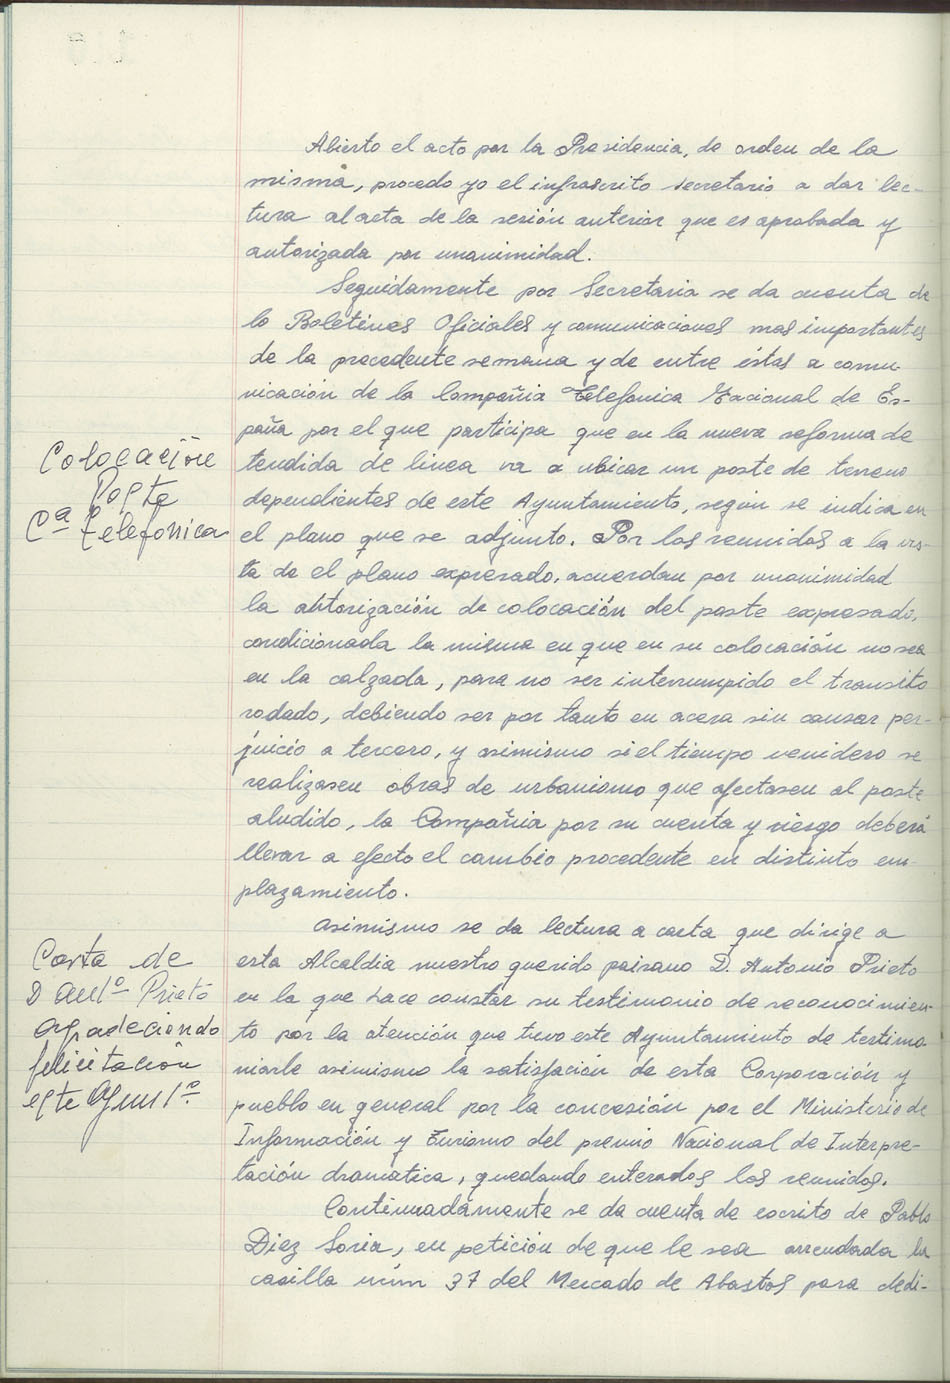 Abierto el acto por la Presidencia, de orden de la
misma, procedo yo el infrascrito secretario a dar lec-
tura al acta de la sesión anterior que es aprobada y
autorizada por unanimidad.
Seguidamente por Secretaria se da cuenta de
lo Boletines Oficiales y comunicaciones mas importantes
de la precedente semana y de entre éstas a comu-
nicación de la Compañia Telefonica Nacional de Es-
paña por el que participa que en la nueva reforma de
tendida de linea va a ubicar un poste de terreno
dependientes de este Ayuntamiento, según se indica en
el plano que se adjunto. Por los reunidos a la vis-
ta de el plano expresado, acuerdan por unanimidad
la abtorización de colocación del poste expresado,
condicionada la misma en que en su colocación no sea
en la calzada, para no ser interrumpido el transito
rodado, debiendo ser por tanto en acera sin causar per-
juicio a tercero, y asimismo si el tiempo venidero se
realizasen obras de urbanismo que afectasen al poste
aludido, la Compañia por su cuenta y riesgo deberá
llevar a efecto el cambio procedente en distinto em-
plazamiento.
Asimismo se da lectura a carta que dirige a
esta Alcaldia nuestro querido paisano D. Antonio Prieto
en la que hace constar su testimonio de reconocimien-
to por la atención que tuvo este Ayuntamiento de testimo-
niarle asimismo la satisfación de esta Corporación y
pueblo en general por la concesión por el Ministerio de
Información y Turismo del premio Nacional de Interpre-
tación dramatica, quedando enterados los reunidos.
Continuadamente se da cuenta de escrito de Pablo
Diez Soria, en petición de que le sea arrendada la
casilla núm 37 del Mercado de Abastos para dedi-
Colocación
Poste
Cª Telefónica
Carta de
D Antº Prieto
agradeciendo
felicitación
este Ayuntº